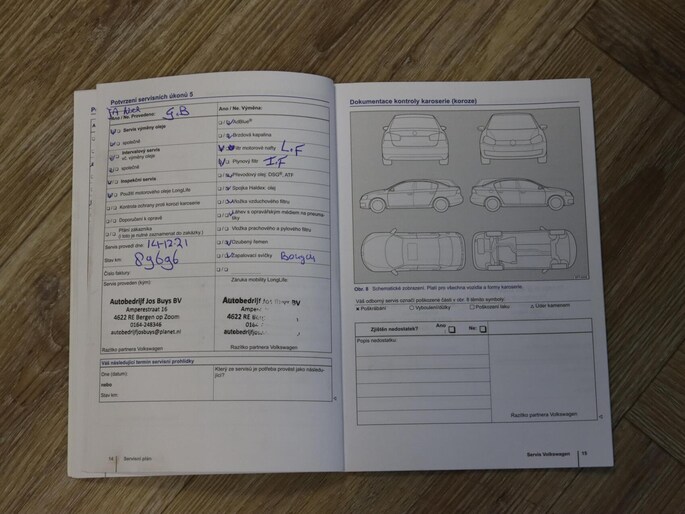 Potvrzení servisních úkonů 5
Ano / Ne. Provedeno:
G.B
Servis výměny oleje
společně
Intervalový servis
vč. výměny oleje
společně
Inspekční servis
Použití motorového oleje LongLife
Kontrola ochrany proti korozi karoserie
Doporučení k opravě
Přání zákazníka
Servis provedl dne:
14-12-21
Stav km:
89696
Číslo faktury:
Servis proveden (kým):
Autobedrijf Jos Buys BV
Amperestraat 16
4622 RE Bergen op Zoom
0164-248346
autobedrijfjosbuys@planet.nl
Razítko partnera Volkswagen
Ano / Ne. Výměna:
AdBlue®
Brzdová kapalina
filtr motorové nafty
L.F
Plynový filtr
I.F
Převodový olej: DSG®, ATF
Spojka Haldex: olej
Vložka vzduchového filtru
Láhev s opravářským médiem na pneumatiky
Vložka prachového a pylového filtru
Ozubený řemen
Zapalovací svíčky
Záruka mobility LongLife:
Autobedrijf Jos Buys BV
4622 RE
0164-
autobedrijfjosbuys
Razítko partnera Volkswagen
Váš následující termín servisní prohlídky
Dne (datum):
nebo
Stav km:
Který ze servisů je potřeba provést jako následující?
14
Servisní plán
Dokumentace kontroly karoserie (koroze)
Obr. 8 Schematické zobrazení. Platí pro všechna vozidla a formy karoserie.
Váš odborný servis označí poškozené části v obr. 8 těmito symboly:
Zjištěn nedostatek?
Ano
Ne:
Popis nedostatku:
Razítko partnera Volkswagen
Servis Volkswagen
15